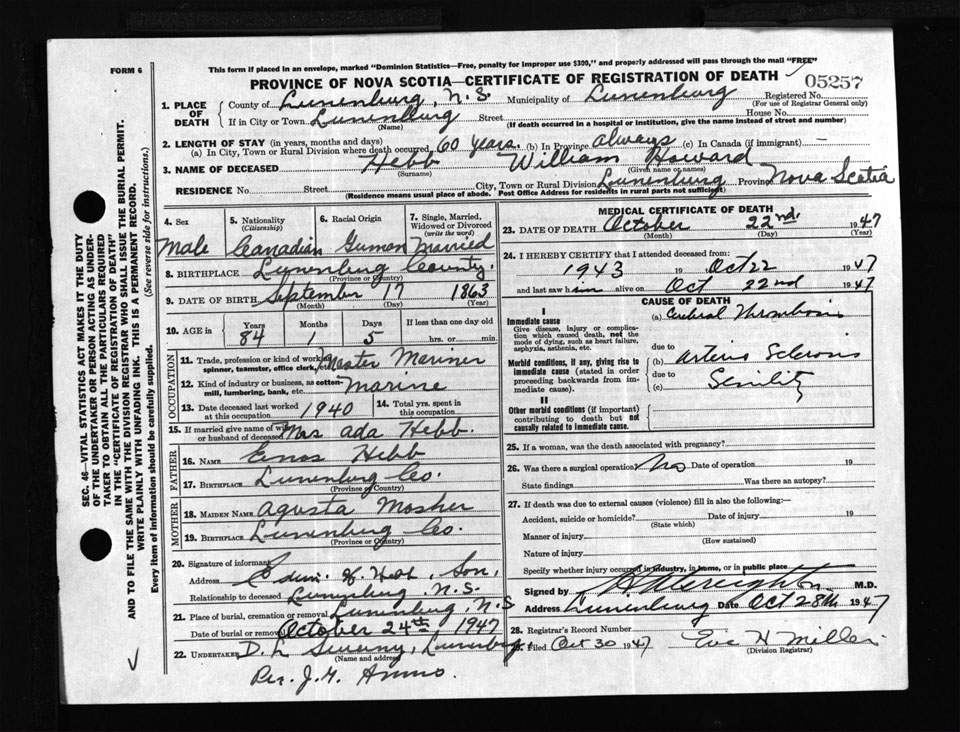 FORM 6
This form if placed in an envelope, marked "Dominion Statistics—Free, penalty for improper use $300," and properly addressed will pass through the mail "FREE"
PROVINCE OF NOVA SCOTIA—CERTIFICATE OF REGISTRATION OF DEATH
05257
1. PLACE OF DEATH
County of Lunenburg, N.S. Municipality of Lunenburg Registered No.
(For use of Registrar General only)
If in City or Town Lunenburg Street House No.
(Name) (If death occurred in a hospital or institution, give the name instead of street and number)
2. LENGTH OF STAY (in years, months and days)
(a) In City, Town or Rural Division where death occurred 60 years. (b) In Province always (c) In Canada (if immigrant)
3. NAME OF DECEASED Hebb William Howard
(Surname) (Given name or names)
RESIDENCE No. Street City, Town or Rural Division Lunenburg Province Nova Scotia
(Residence means usual place of abode. Post Office Address for residents in rural parts not sufficient)
4. Sex
Male
5. Nationality
(Citizenship)
Canadian
6. Racial Origin
German
7. Single, Married, Widowed or Divorced
(write the word)
Married
8. BIRTHPLACE Lunenburg County.
(Province or Country)
9. DATE OF BIRTH September 17 1863
(Month) (Day) (Year)
10. AGE in
Years Months Days If less than one day old
84 1 5 hrs. or min.
OCCUPATION
11. Trade, profession or kind of work as spinner, teamster, office clerk, etc. Master Mariner
12. Kind of industry or business, as cotton-mill, lumbering, bank, etc. Marine
13. Date deceased last worked at this occupation 1940
14. Total yrs. spent in this occupation
15. If married give name of wife or husband of deceased Mrs Ada Hebb.
FATHER
16. NAME Enos Hebb
17. BIRTHPLACE Lunenburg Co.
(Province or Country)
MOTHER
18. MAIDEN NAME Agusta Mosher
19. BIRTHPLACE Lunenburg Co.
(Province or Country)
20. Signature of informant
Address
Hebb, Son,
Relationship to deceased Lunenburg, N.S.
21. Place of burial, cremation or removal Lunenburg, N.S
Date of burial or removal October 24th 1947
22. UNDERTAKER D. L Sweeny, Lunenburg
(Name and address)
Per. J. H.
MEDICAL CERTIFICATE OF DEATH
23. DATE OF DEATH October 22nd. 1947
(Month) (Day) (Year)
24. I HEREBY CERTIFY that I attended deceased from:
1943 19 Oct 22 1947
and last saw him alive on Oct 22nd 1947
CAUSE OF DEATH
I
Immediate cause
Give disease, injury or complication which caused death, not the mode of dying, such as heart failure, asphyxia, asthenia, etc.
(a) Cerebral Thrombosis
due to
Morbid conditions, if any, giving rise to immediate cause (stated in order proceeding backwards from immediate cause).
(b) Arterio Sclerosis
due to
(c) Senility
II
Other morbid conditions (if important) contributing to death but not causally related to immediate cause.
25. If a woman, was the death associated with pregnancy?
26. Was there a surgical operation? No Date of operation 19
State findings Was there an autopsy?
27. If death was due to external causes (violence) fill in also the following:—
Accident, suicide or homicide? Date of injury 19
(State which)
Manner of injury
(How sustained)
Nature of injury
Specify whether injury occurred in industry, in home, or in public place
Signed by Creighton M.D.
Address Lunenburg Date Oct 28th 1947
28. Registrar's Record Number
Filed Oct 30 1947
(Division Registrar)
SEC. 46—VITAL STATISTICS ACT MAKES IT THE DUTY
OF THE UNDERTAKER OR PERSON ACTING AS UNDER-
TAKER TO OBTAIN ALL THE PARTICULARS REQUIRED
IN THE "CERTIFICATE OF REGISTRATION OF DEATH"
AND TO FILE THE SAME WITH THE DIVISION REGISTRAR WHO SHALL ISSUE THE BURIAL PERMIT.
WRITE PLAINLY WITH UNFADING INK. THIS IS A PERMANENT RECORD.
Every item of information should be carefully supplied. (See reverse side for instructions.)